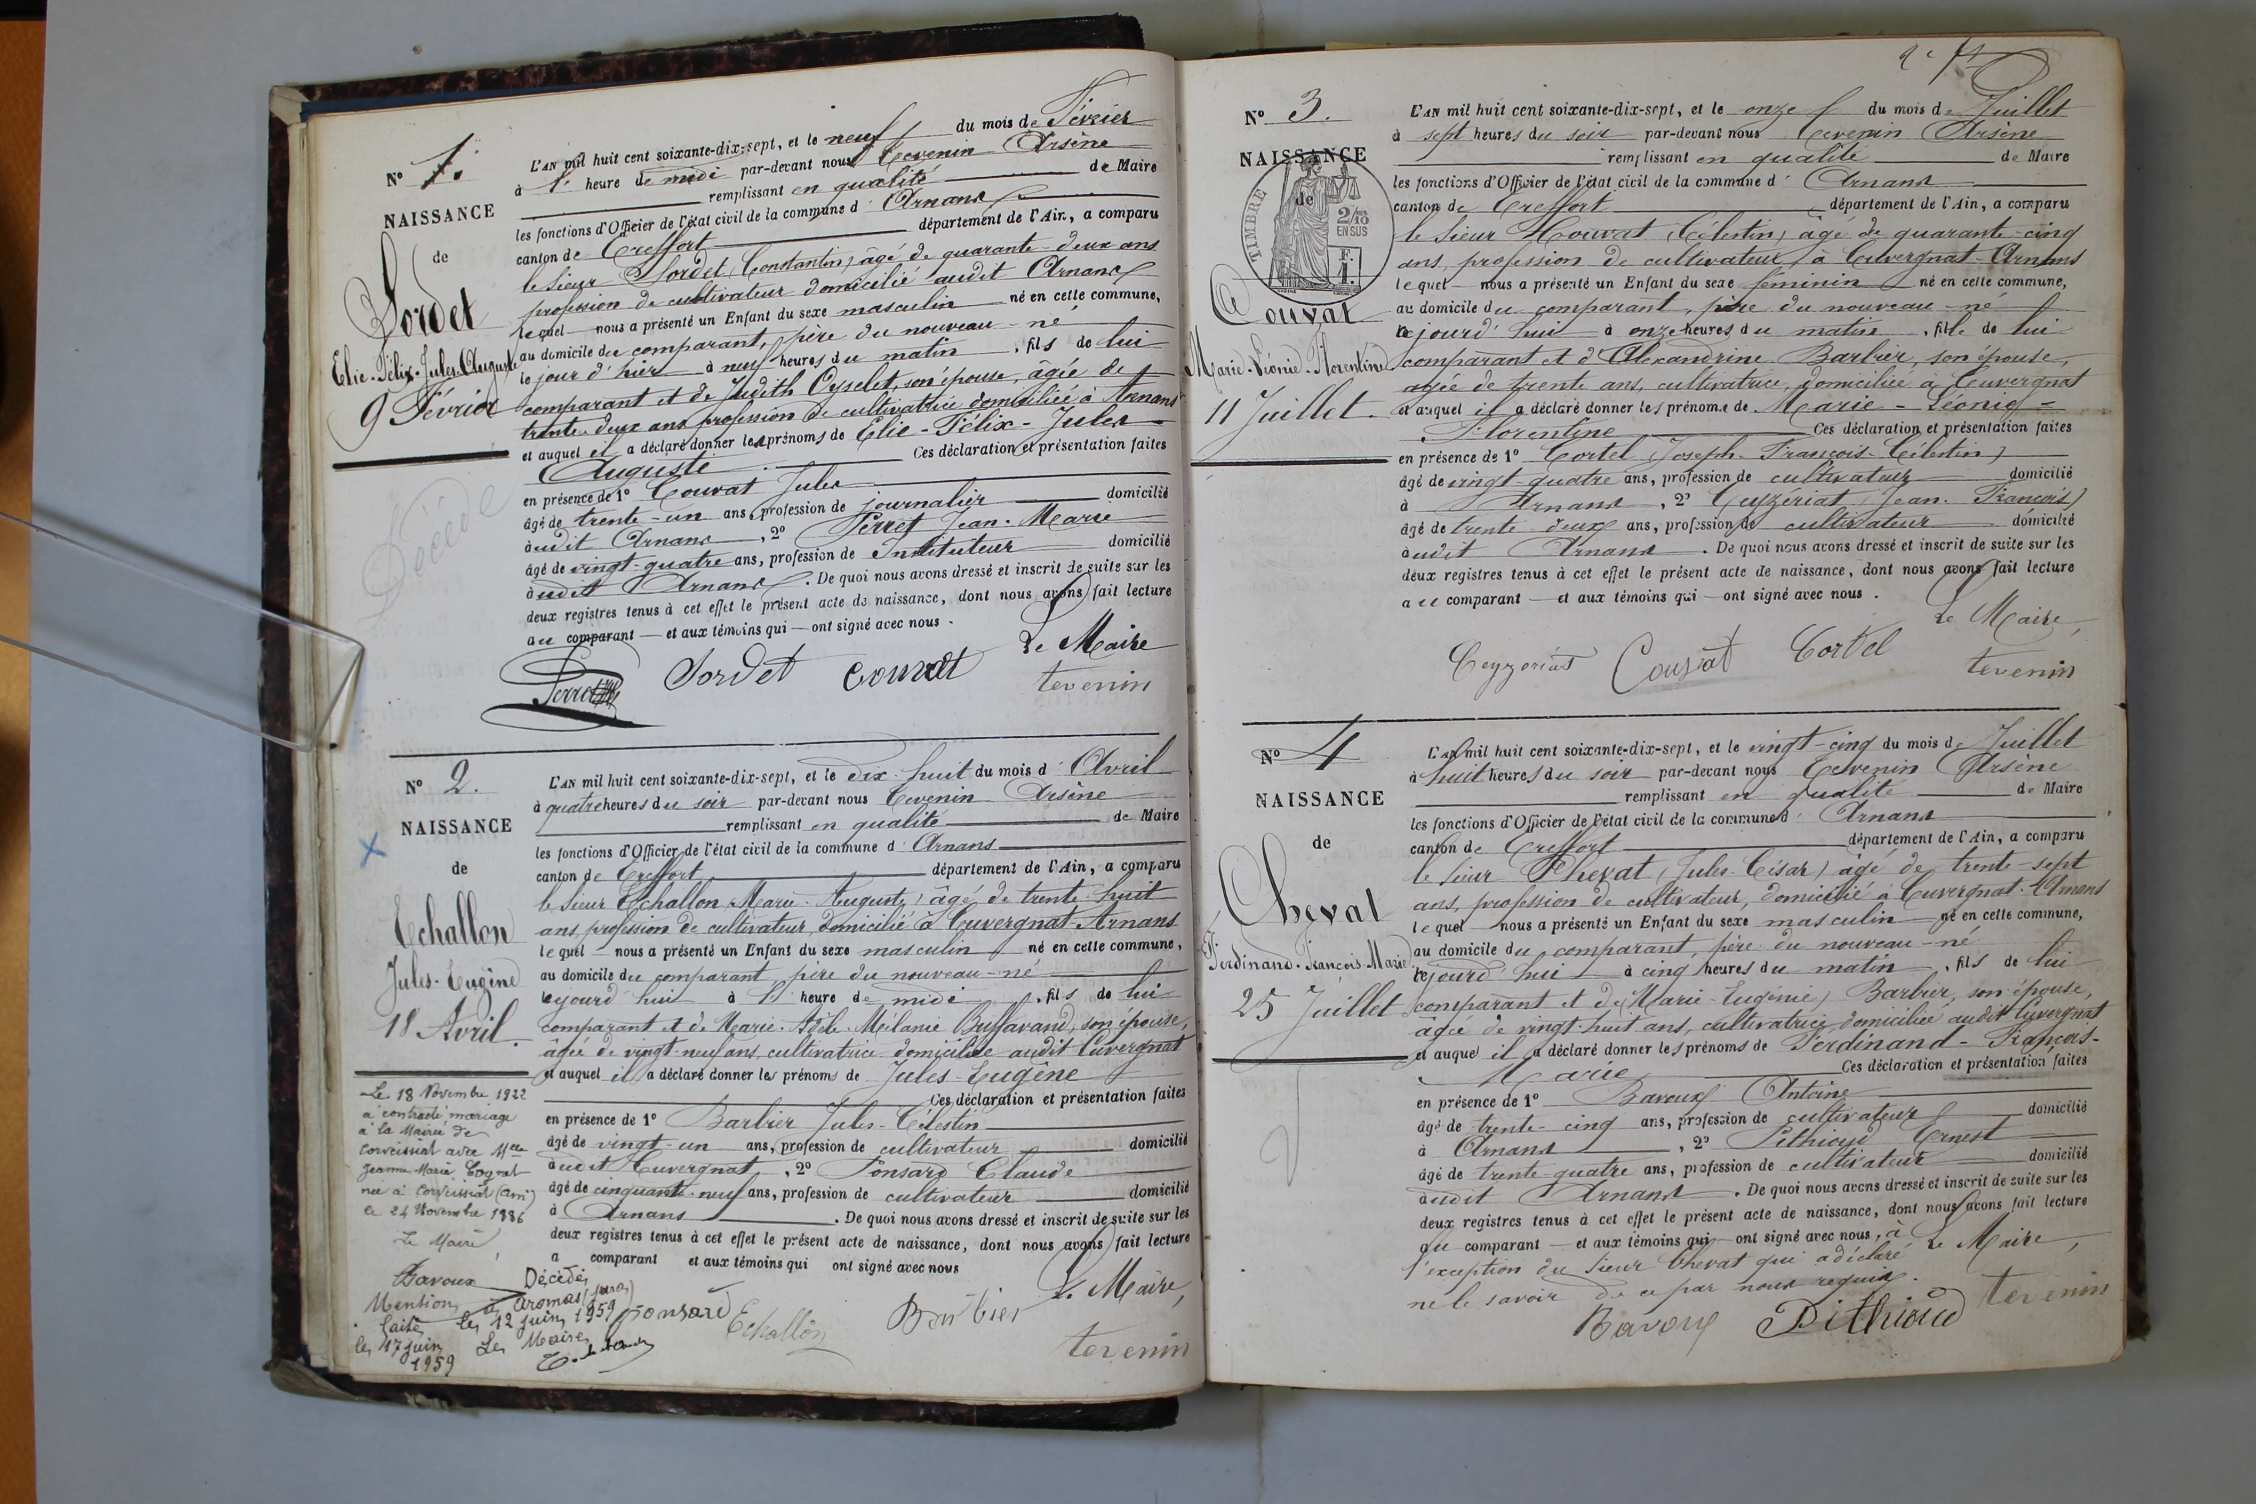 N° 1.
NAISSANCE
de
Sordet
Elie-Félix-Jules-Auguste
9 Février
Décédé
L'AN mil huit cent soixante-dix-sept, et le neuf du mois de Février
à 1 heure de midi par-devant nous Tevenin Arsène
remplissant en qualité de Maire
les fonctions d'Officier de l'état civil de la commune d' Arnans
canton de Treffort département de l'Ain, a comparu
le sieur Sordet (Constantin) âgé de quarante-deux ans
profession de cultivateur domicilié audit Arnans
lequel nous a présenté un Enfant du sexe masculin né en cette commune,
au domicile du comparant, père du nouveau-né
le jour d'hier à neuf heures du matin, fils de lui
comparant et de Judith Oyselet, son épouse, âgée de
trente-deux ans profession de cultivatrice domiciliée à Arnans
et auquel il a déclaré donner les prénoms de Elie-Félix-Jules
Auguste Ces déclaration et présentation faites
en présence de 1° Couvat Jules
âgé de trente-un ans, profession de journalier domicilié
audit Arnans, 2° Perret Jean-Marie
âgé de vingt-quatre ans, profession de Instituteur domicilié
audit Arnans. De quoi nous avons dressé et inscrit de suite sur les
deux registres tenus à cet effet le présent acte de naissance, dont nous avons fait lecture
au comparant et aux témoins qui ont signé avec nous.
Le Maire
Perret Sordet Couvat tevenin
N° 2.
NAISSANCE
de
Echallon
Jules-Eugène
18 Avril.
L'AN mil huit cent soixante-dix-sept, et le dix-huit du mois d' Avril
à quatre heures du soir par-devant nous Tevenin Arsène
remplissant en qualité de Maire
les fonctions d'Officier de l'état civil de la commune d' Arnans
canton de Treffort département de l'Ain, a comparu
le sieur Echallon Marie-Auguste, âgé de trente-huit
ans, profession de cultivateur, domicilié à Cuvergnat-Arnans
lequel nous a présenté un Enfant du sexe masculin né en cette commune,
au domicile du comparant, père du nouveau-né
cejourd'hui à 1 heure de midi, fils de lui
comparant et de Marie-Adèle-Mélanie Buffavand, son épouse,
âgée de vingt-neuf ans, cultivatrice domiciliée audit Cuvergnat
et auquel il a déclaré donner les prénoms de Jules-Eugène
Ces déclaration et présentation faites
en présence de 1° Barbier Jules-Célestin
âgé de vingt-un ans, profession de cultivateur domicilié
audit Cuvergnat, 2° Ponsard Claude
âgé de cinquante-neuf ans, profession de cultivateur domicilié
à Arnans. De quoi nous avons dressé et inscrit de suite sur les
deux registres tenus à cet effet le présent acte de naissance, dont nous avons fait lecture
a comparant et aux témoins qui ont signé avec nous
Le Maire,
ponsard Echallon Barbier
tevenin
Le 18 Novembre 1922
a contracté mariage
à la Mairie de
Corveissiat avec Melle
Jeanne Marie
née à Corveissiat (Ain)
le 24 Novembre 1886
Le Maire,
Bavoux
Mention
faite
le 17 juin
1959
Décédé
à Aromas (Jura)
le 12 juin 1959
Le Maire
N° 3.
NAISSANCE
de
TIMBRE
2/10
EN SUS
F.
1.
Couvat
Marie-Léonie-Florentine
11 Juillet.
L'AN mil huit cent soixante-dix-sept, et le onze du mois de Juillet
à sept heures du soir par-devant nous Tevenin Arsène
remplissant en qualité de Maire
les fonctions d'Officier de l'état civil de la commune d' Arnans
canton de Treffort département de l'Ain, a comparu
le sieur Couvat (Célestin) âgé de quarante-cinq
ans, profession de cultivateur à Cuvergnat-Arnans
lequel nous a présenté un Enfant du sexe féminin né en cette commune,
au domicile du comparant, père du nouveau-né
cejourd'hui à onze heures du matin, fille de lui
comparant et d'Alexandrine Barbier, son épouse,
âgée de trente ans, cultivatrice, domiciliée à Cuvergnat
et auquel il a déclaré donner les prénoms de Marie-Léonie-
Florentine Ces déclaration et présentation faites
en présence de 1° Cortel (Joseph-François-Célestin)
âgé de vingt-quatre ans, profession de cultivateur domicilié
à Arnans, 2° Ceyzériat (Jean-François)
âgé de trente-deux ans, profession de cultivateur domicilié
audit Arnans. De quoi nous avons dressé et inscrit de suite sur les
deux registres tenus à cet effet le présent acte de naissance, dont nous avons fait lecture
au comparant et aux témoins qui ont signé avec nous.
Le Maire,
Ceyzériat Couvat Cortel tevenin
N° 4
NAISSANCE
de
Chevat
Ferdinand-François-Marie
25 Juillet
L'AN mil huit cent soixante-dix-sept, et le vingt-cinq du mois de Juillet
à huit heures du soir par-devant nous Tevenin Arsène
remplissant en qualité de Maire
les fonctions d'Officier de l'état civil de la commune d' Arnans
canton de Treffort département de l'Ain, a comparu
le sieur Chevat (Jules-César) âgé de trente-sept
ans, profession de cultivateur, domicilié à Cuvergnat-Arnans
lequel nous a présenté un Enfant du sexe masculin né en cette commune,
au domicile du comparant, père du nouveau-né
cejourd'hui à cinq heures du matin, fils de lui
comparant et de (Marie-Eugénie) Barbier, son épouse,
âgée de vingt-huit ans, cultivatrice domiciliée audit Cuvergnat
et auquel il a déclaré donner les prénoms de Ferdinand-François-
Marie Ces déclaration et présentation faites
en présence de 1° Bavoux Antoine
âgé de trente-cinq ans, profession de cultivateur domicilié
à Arnans, 2° Pithioud Ernest
âgé de trente-quatre ans, profession de cultivateur domicilié
audit Arnans. De quoi nous avons dressé et inscrit de suite sur les
deux registres tenus à cet effet le présent acte de naissance, dont nous avons fait lecture
au comparant et aux témoins qui ont signé avec nous, à
l'exception du sieur Chevat qui a déclaré
ne le savoir de ce par nous requis.
Le Maire,
Bavoux Pithioud tevenin